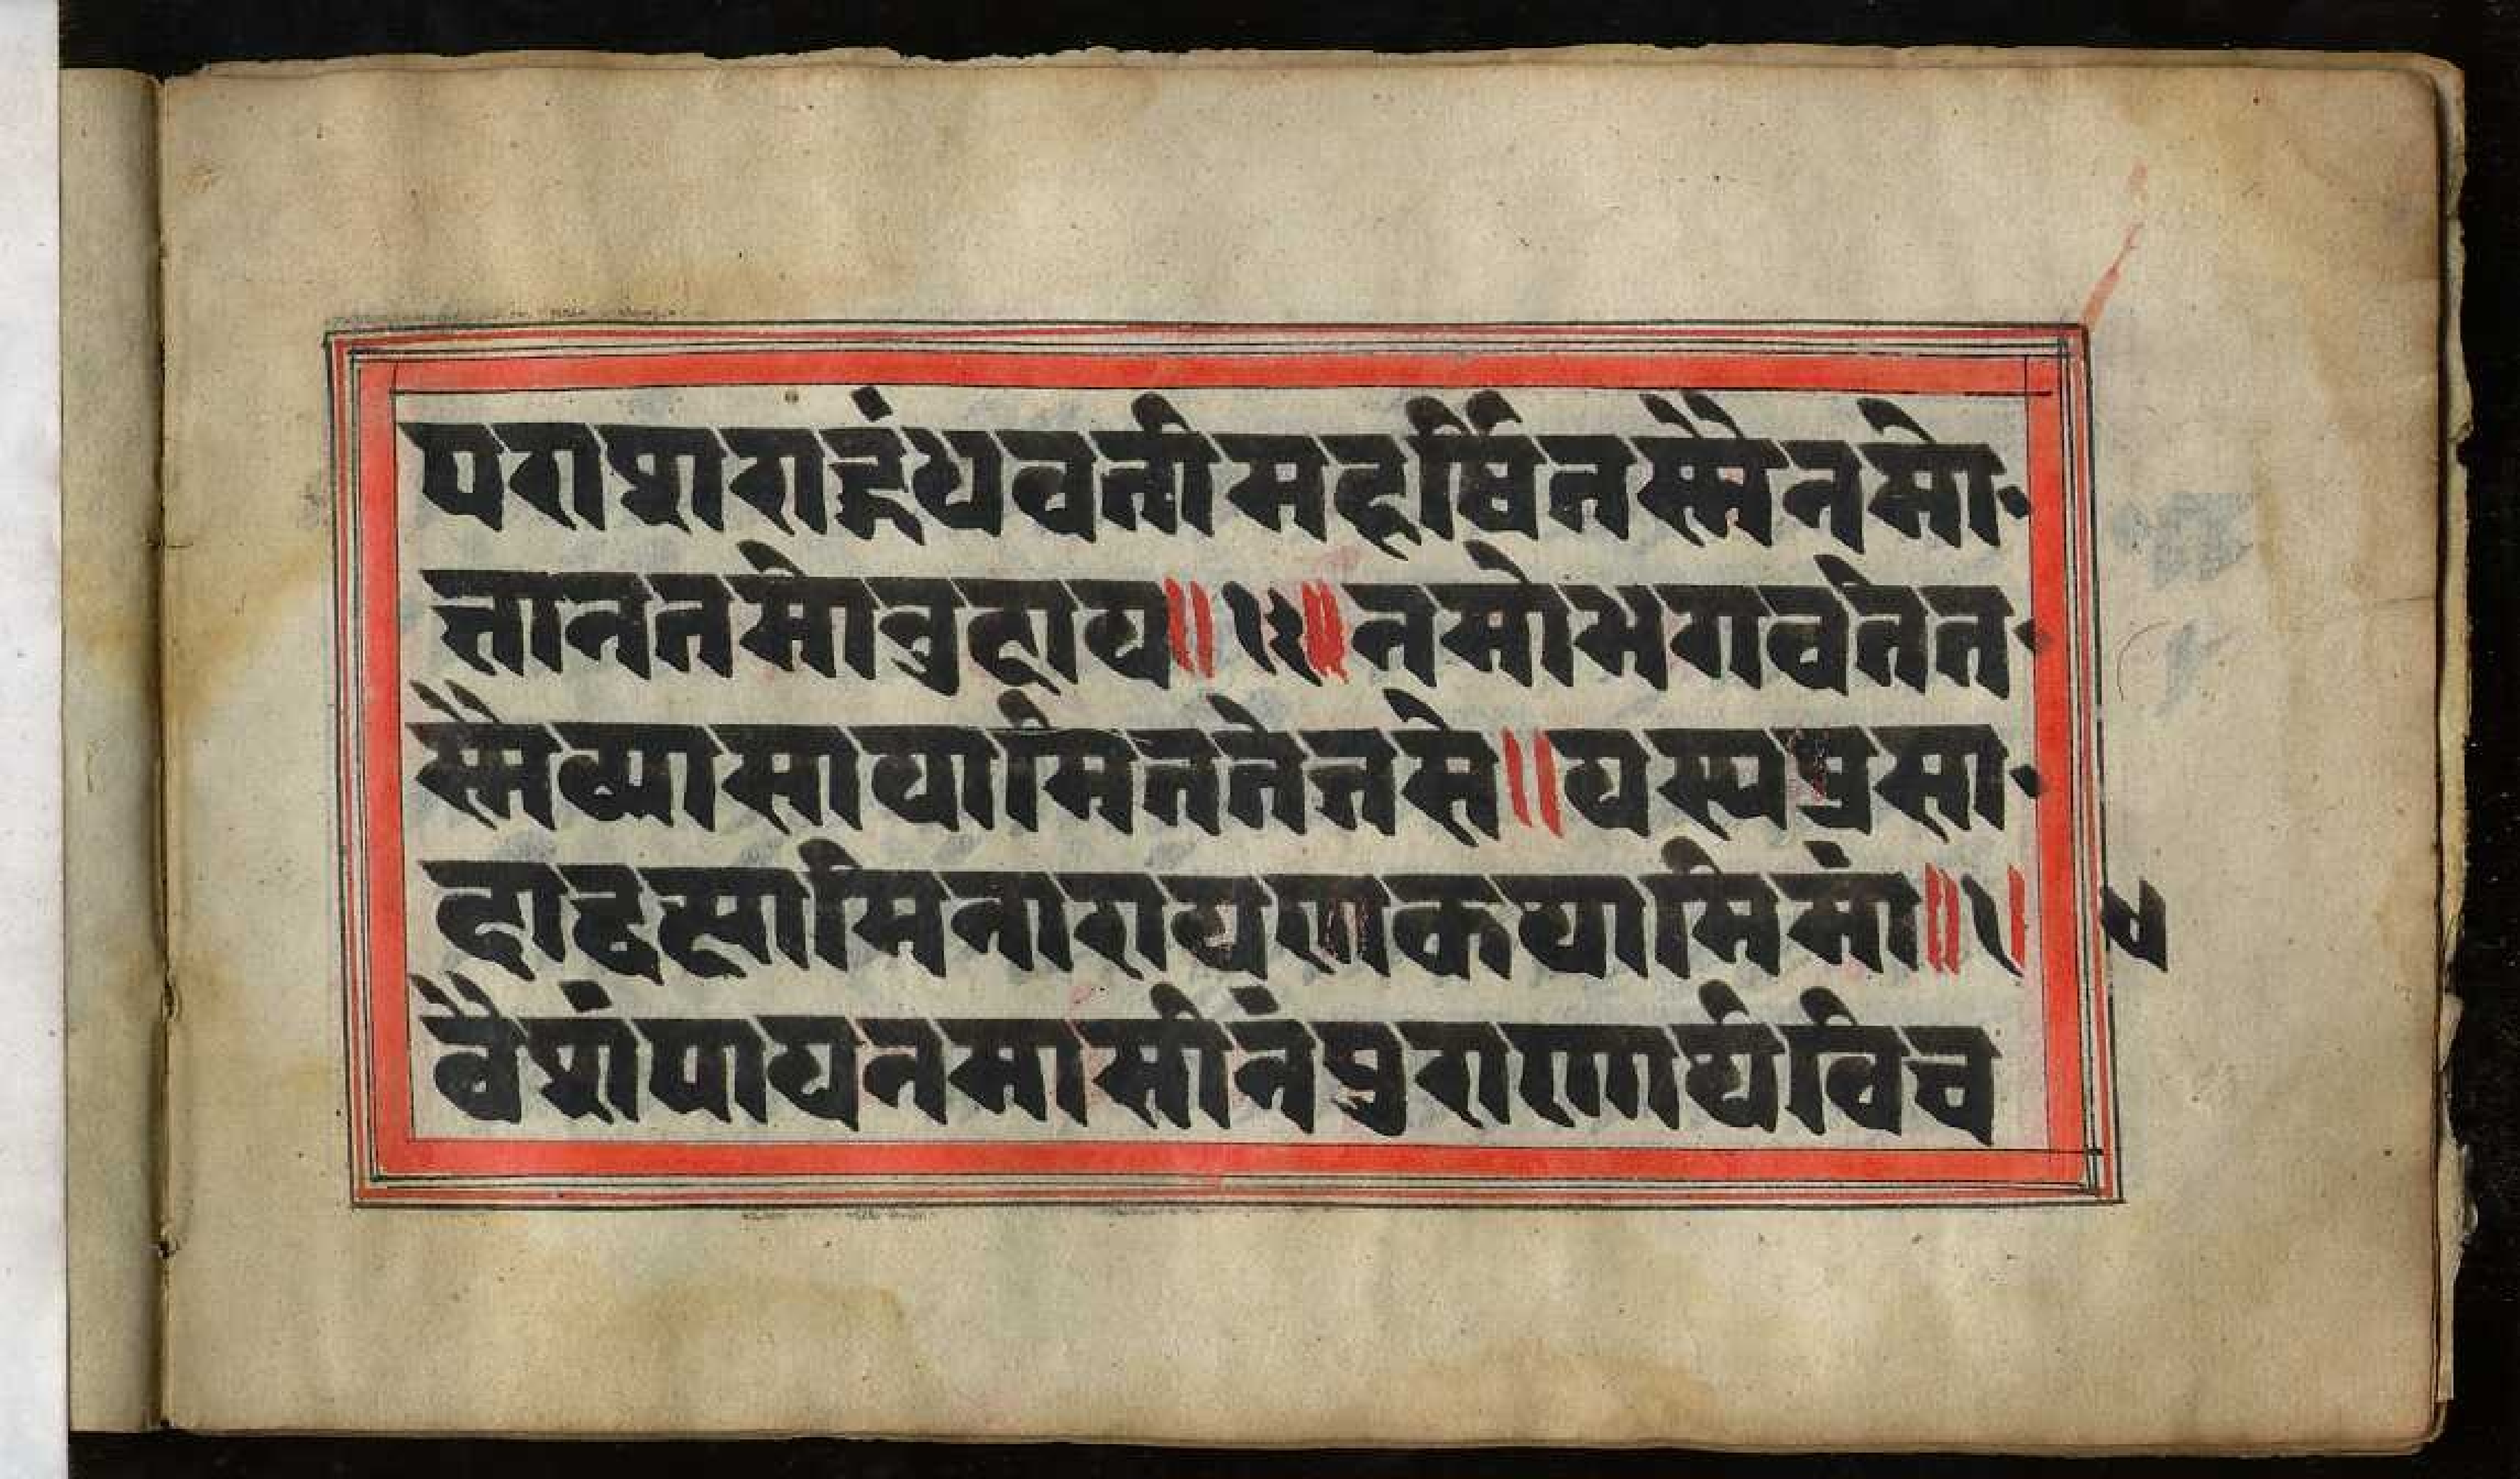 पराशराद्गंधवतीमहर्षितस्मैनमो
ज्ञानतमोनुदाय॥१२॥नमोभगवतेत
स्मैव्यासायामिततेजसे॥यस्यप्रसा
दाद्वक्ष्यामिनारायणकथामिमां॥१॥
वैशंपायनमासीनंपुराणार्थेविच